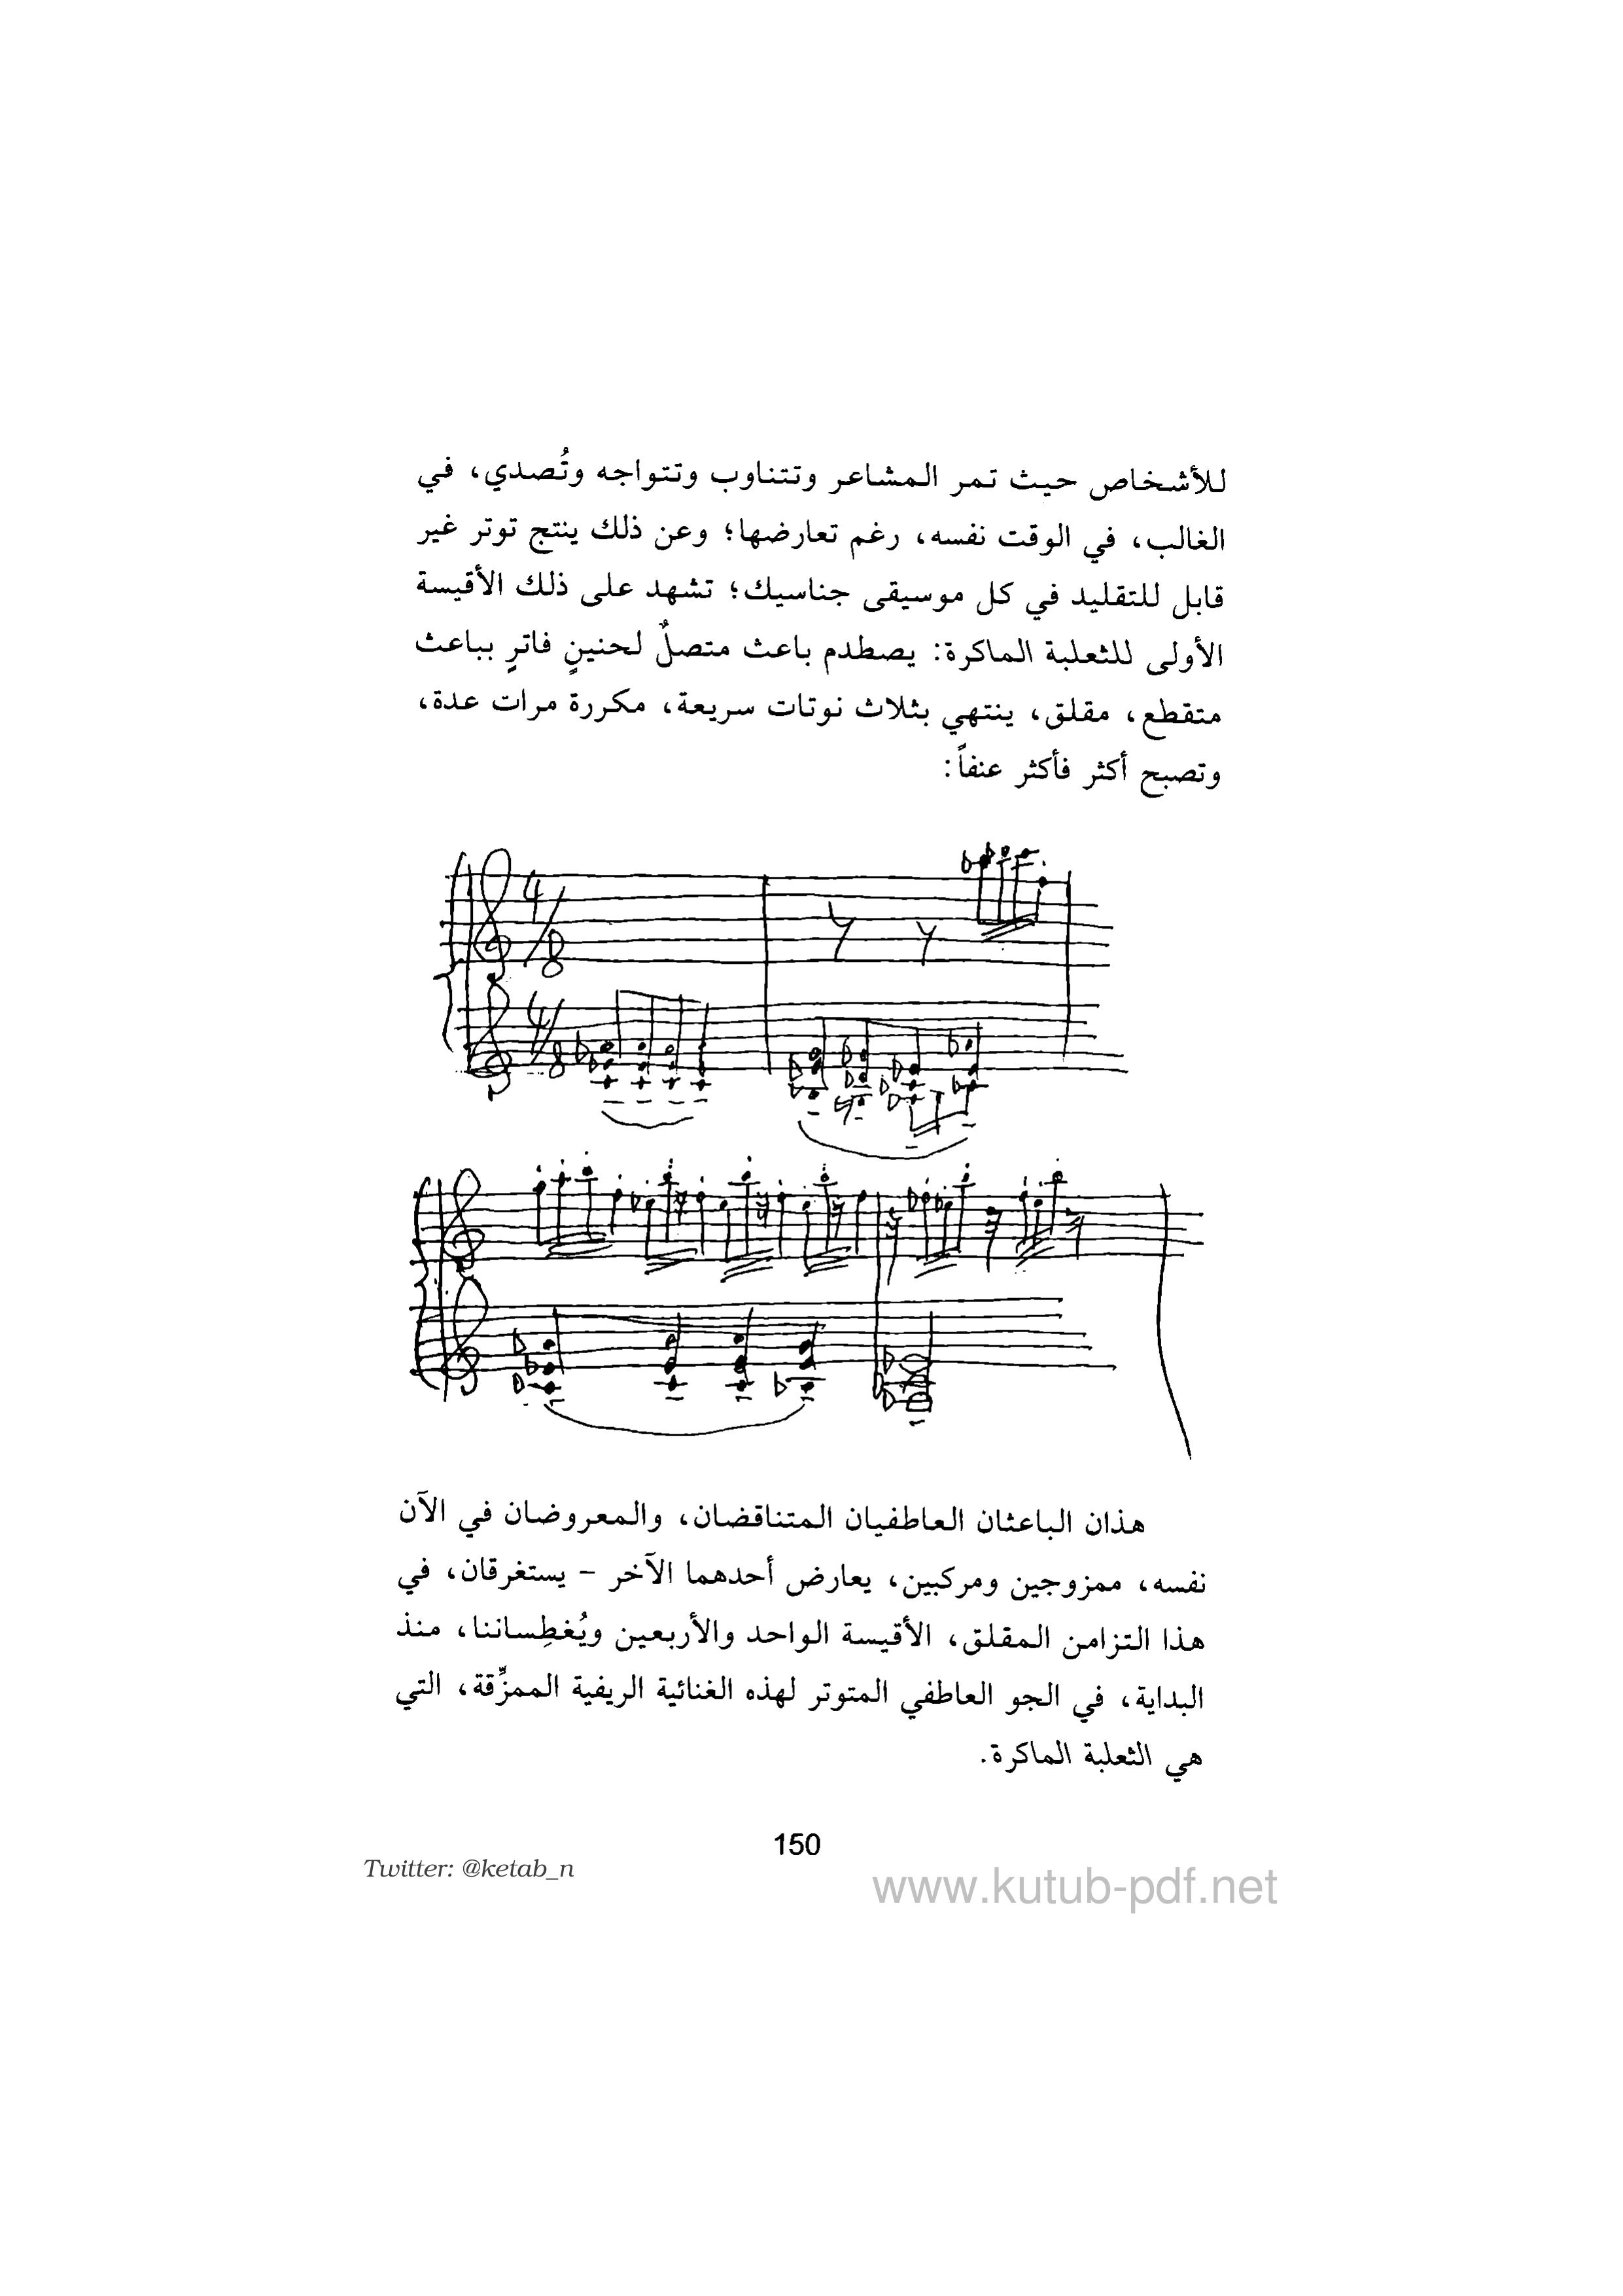 للأشخاص حيث تمر المشاعر وتتناوب وتتواجه وتُصدي، في
الغالب، في الوقت نفسه، رغم تعارضها؛ وعن ذلك ينتج توتر غير
قابل للتقليد في كل موسيقى جناسيك؛ تشهد على ذلك الأقيسة
الأولى للثعلبة الماكرة: يصطدم باعث متصلٌ لحنينٍ فاترٍ بباعث
متقطع، مقلق، ينتهي بثلاث نوتات سريعة، مكررة مرات عدة،
وتصبح أكثر فأكثر عنفاً:
4/8
4/8
هذان الباعثان العاطفيان المتناقضان، والمعروضان في الآن
نفسه، ممزوجين ومركبين، يعارض أحدهما الآخر – يستغرقان، في
هذا التزامن المقلق، الأقيسة الواحد والأربعين ويُغطِساننا، منذ
البداية، في الجو العاطفي المتوتر لهذه الغنائية الريفية الممزِّقة، التي
هي الثعلبة الماكرة.
150
Twitter: @ketab_n
www.kutub-pdf.net